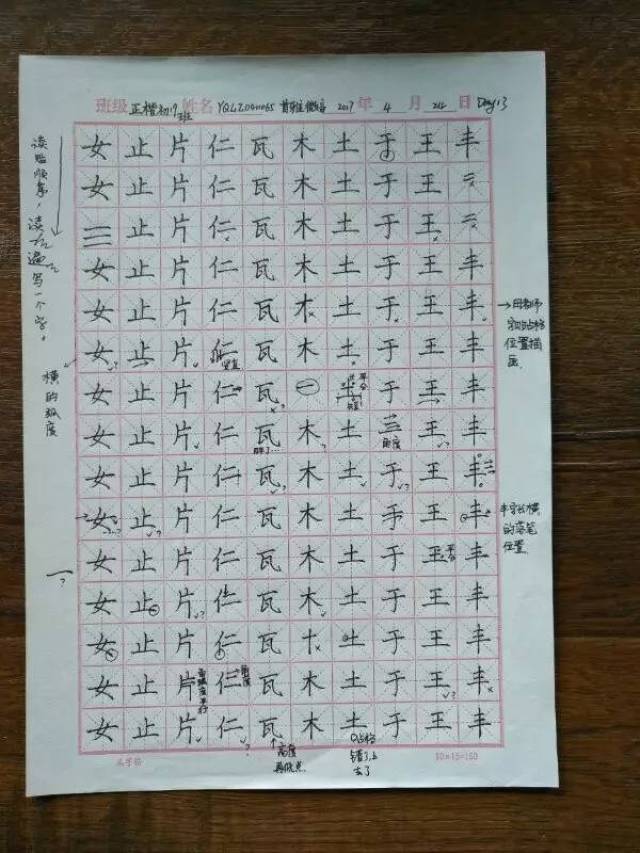 班级 正楷初17班 姓名 YQLZ0411065 2017 年 4 月 24 日 Day13
女 止 片 仁 瓦 木 土 于 王 丰
女 止 片 仁 瓦 木 土 于 王
止 片 仁 瓦 木 土 于 王
女 止 片 仁 瓦 木 土 于 王 丰
女 止 片 仁 瓦 木 土 于 王 丰
女 止 片 仁 瓦 木 土 于 王 丰
女 止 片 仁 瓦 一 土 于 王 丰
女 止 片 仁 瓦 木 土 三 王 丰
女 止 片 仁 瓦 木 土 于 王 丰
女 止 片 仁 瓦 木 土 于 王 丰
女 止 片 仁 瓦 木 土 于 王 丰
女 止 片 仁 瓦 木 土 于 王 丰
女 止 片 仁 瓦 十 土 于 王 丰
女 止 片 仁 瓦 木 土 于 王 丰
女 止 片 仁 瓦 木 土 于 王 丰
横的弧度
位置描
丰字长横
的落笔
位置
角度
胖了...
高度
再低点
错了
去了
10×15=150